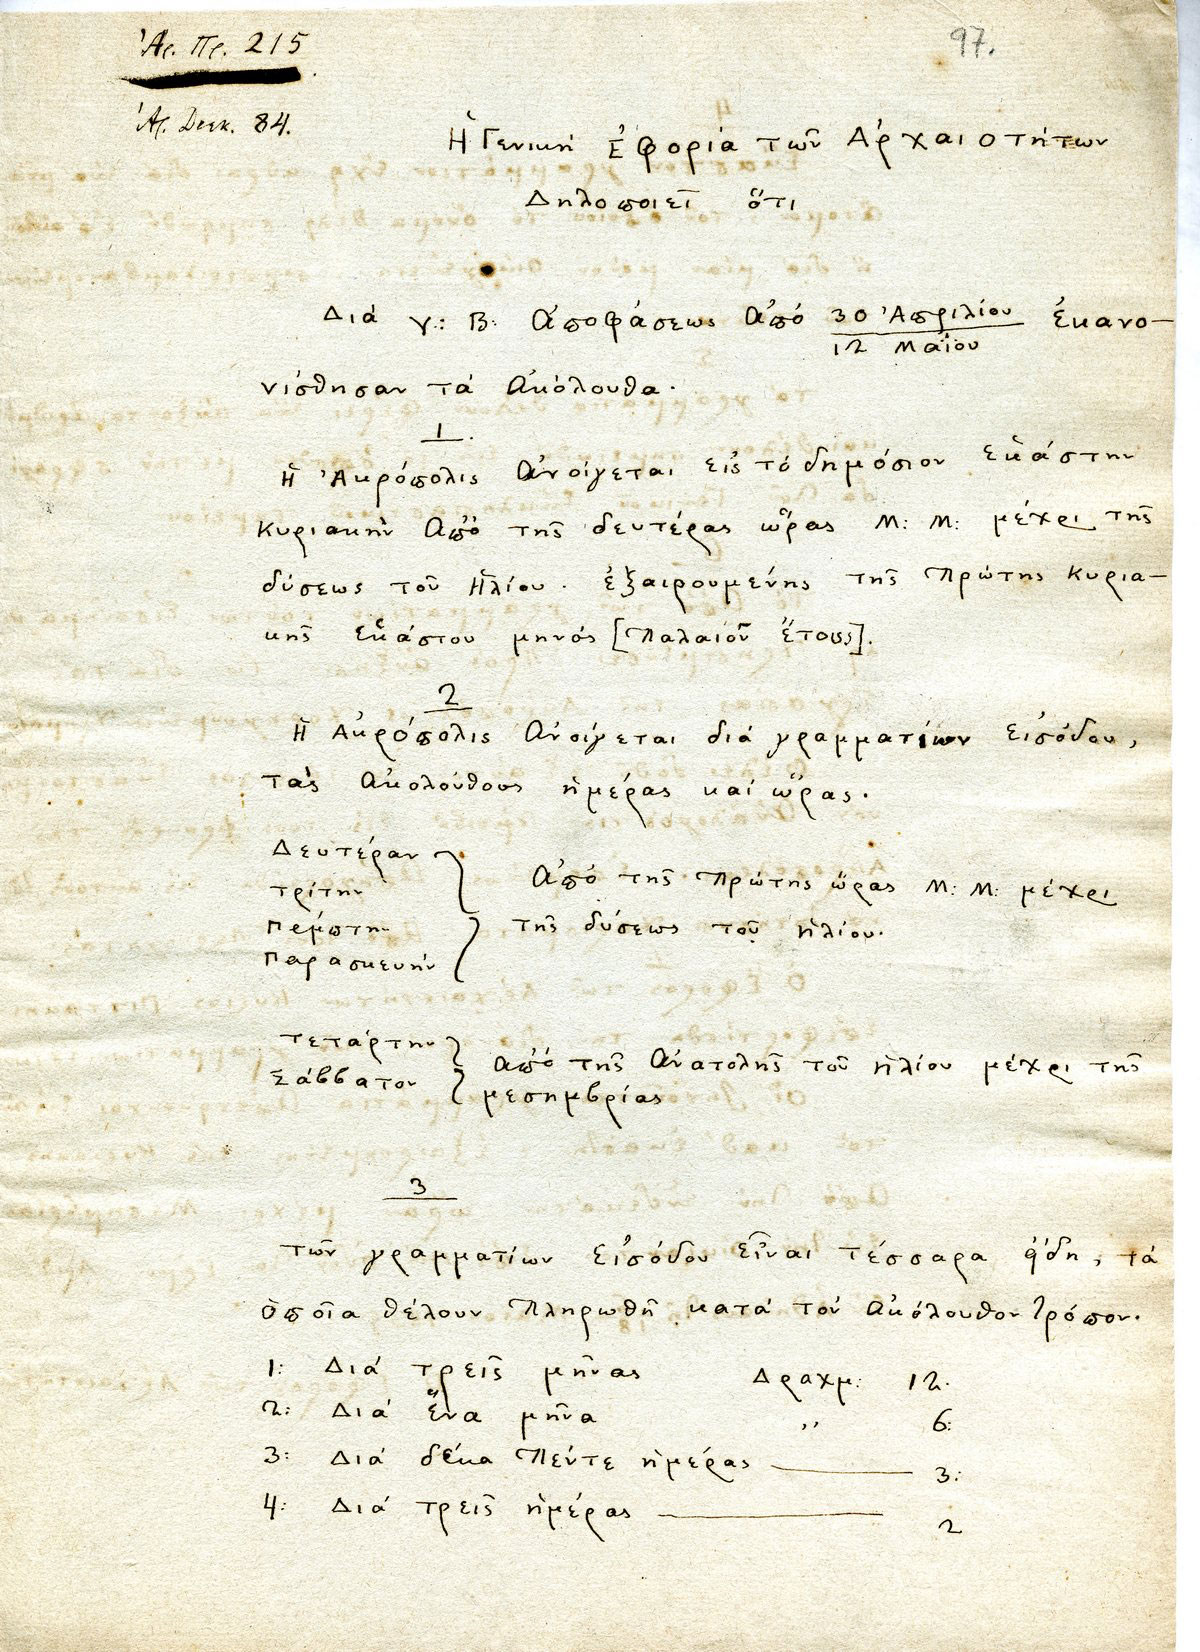 Ἀρ. Πρ. 215
97.
Ἀρ. Διεκ. 84.
Ἡ Γενική Ἐφορία τῶν Ἀρχαιοτήτων
Δηλοποιεῖ ὅτι
Διά γ.: Β: Ἀποφάσεως Ἀπό 30 Ἀπριλίου ἐκανο-
12 Μαΐου
νίσθησαν τά Ἀκόλουθα.
1.
Ἡ Ἀκρόπολις Ἀνοίγεται εἰς τό δημόσιον ἑκάστην
Κυριακήν Ἀπό τῆς δευτέρας ὥρας Μ: Μ: μέχρι τῆς
δύσεως τοῦ Ἡλίου. ἐξαιρουμένης τῆς Πρώτης Κυρια-
κῆς ἑκάστου μηνός [Παλαιοῦ ἔτους].
2
Ἡ Ἀκρόπολις Ἀνοίγεται διά γραμματίων εἰσόδου,
τάς Ἀκολούθους ἡμέρας καί ὥρας.
Δευτέραν
τρίτην
Πέμπτην
Παρασκευήν
Ἀπό τῆς Πρώτης ὥρας Μ: Μ: μέχρι
τῆς δύσεως τοῦ ἡλίου.
τετάρτην
Σάββατον
ἀπό τῆς Ἀνατολῆς τοῦ ἡλίου μέχρι τῆς
μεσημβρίας
3
τῶν γραμματίων εἰσόδου εἶναι τέσσαρα ᾔδη, τά
ὁποῖα θέλουν Πληρωθῆ κατά τόν Ἀκόλουθον Τρόπον.
1: Διά τρεῖς μῆνας Δραχμ: 12.
2: Διά ἕνα μῆνα ,, 6:
3: Διά δέκα Πέντε ἡμέρας 3:
4: Διά τρεῖς ἡμέρας 2